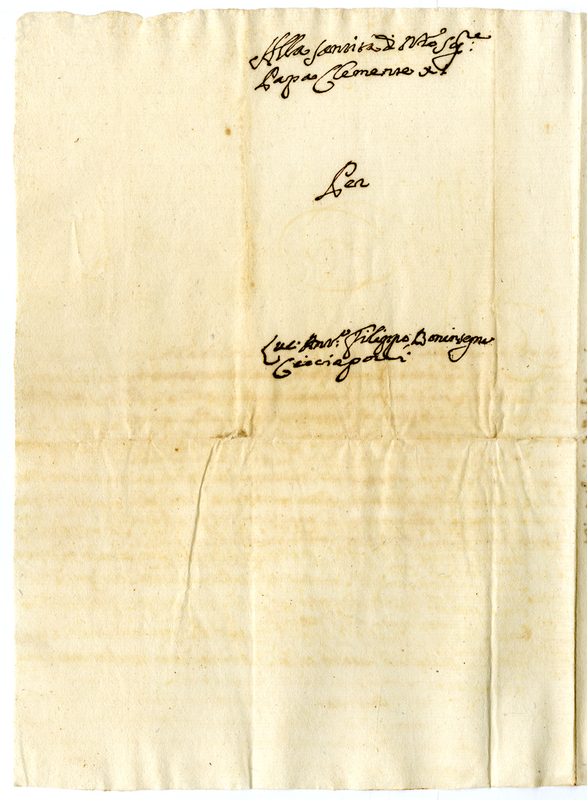 Alla Santità di Nro Sige.
Papa Clemente XI
Per
Luc: Ant.o Filippo Boninsegni